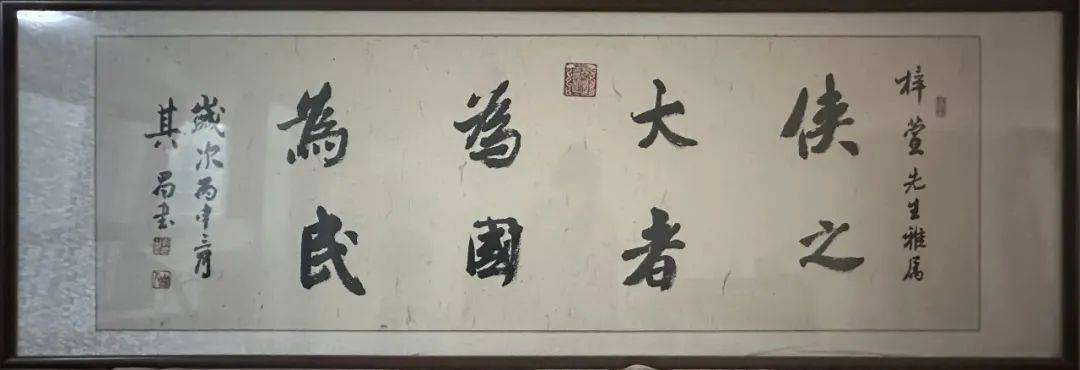 梓萱先生雅属
侠之
大者
為國
為民
歲次丙申三月
其昌書